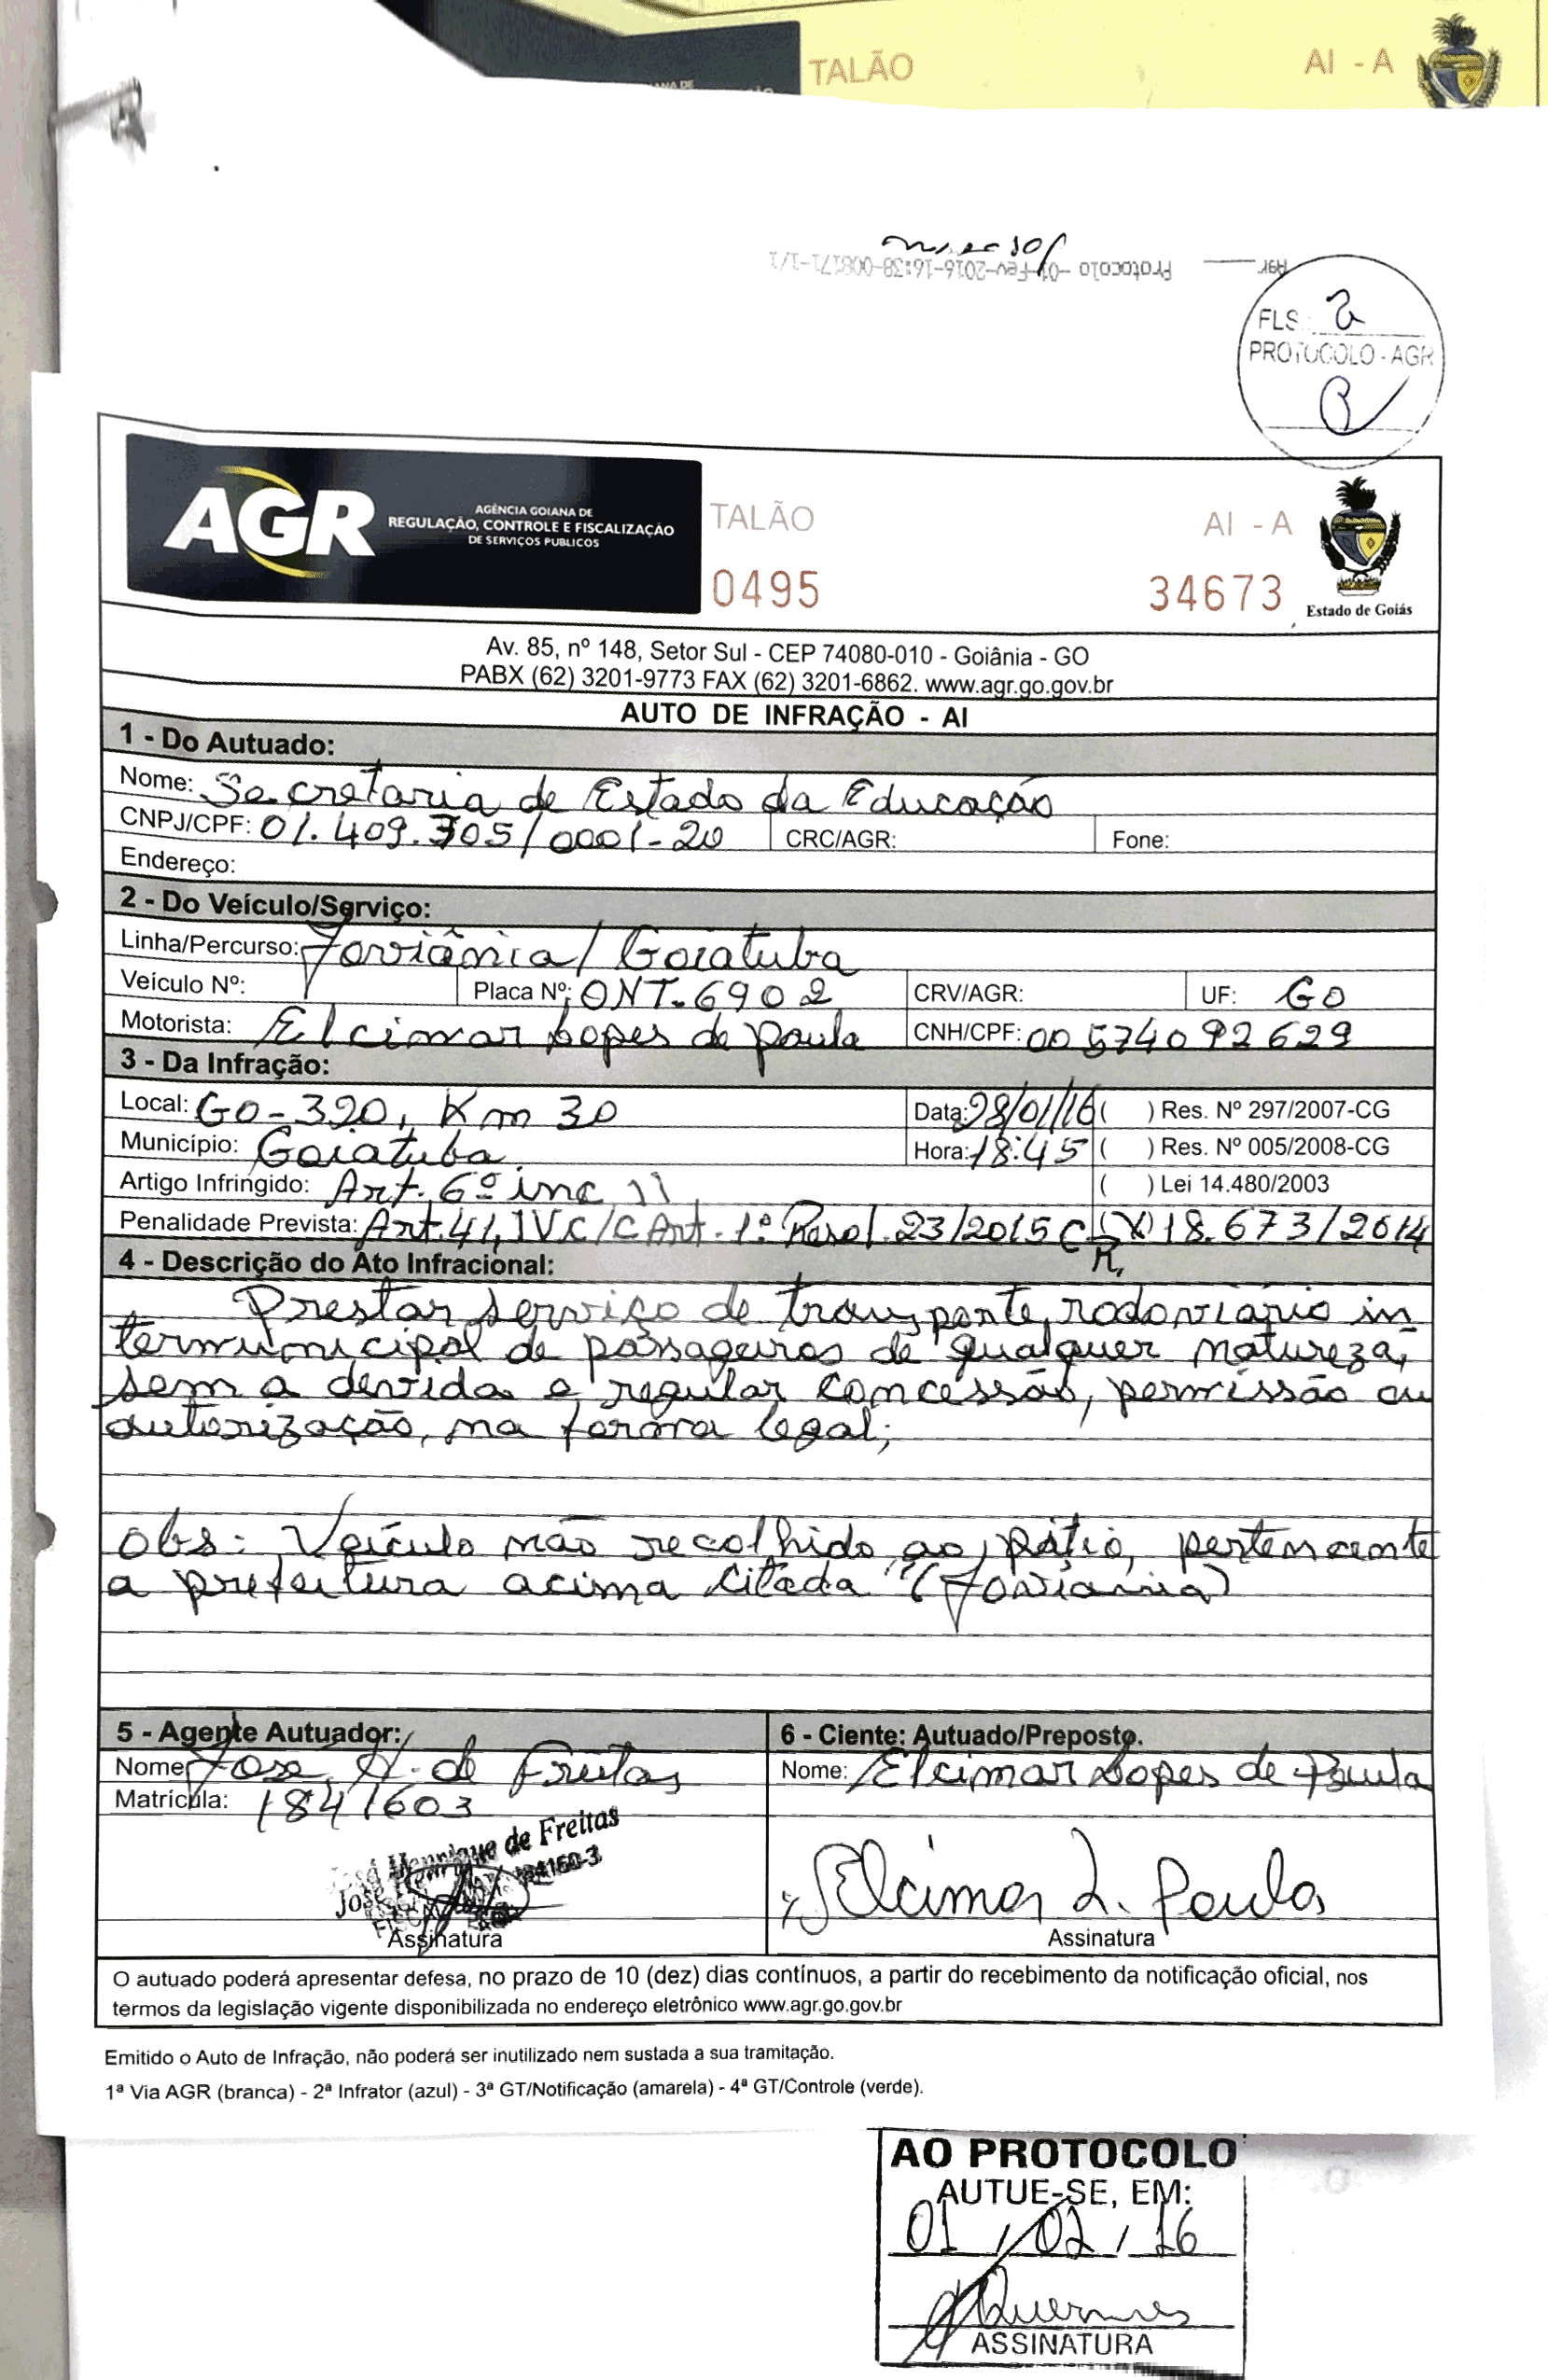 TALÃO AI - A
Protocolo -01-Fev-2016-16:38-008171-1/1
AGR
FLS. 2
PROTOCOLO - AGR
AGR
AGÊNCIA GOIANA DE
REGULAÇÃO, CONTROLE E FISCALIZAÇÃO
DE SERVIÇOS PÚBLICOS
TALÃO AI - A
0495 34673
Estado de Goiás
Av. 85, nº 148, Setor Sul - CEP 74080-010 - Goiânia - GO
PABX (62) 3201-9773 FAX (62) 3201-6862. www.agr.go.gov.br
AUTO DE INFRAÇÃO - AI
1 - Do Autuado:
Nome: Secretaria de Estado da Educação
CNPJ/CPF: 01.409.705/0001-20 CRC/AGR: Fone:
Endereço:
2 - Do Veículo/Serviço:
Linha/Percurso: Joviânia / Goiatuba
Veículo Nº: Placa Nº: ONT-6902 CRV/AGR: UF: GO
Motorista: Elcimar Lopes de Paula CNH/CPF: 00574092629
3 - Da Infração:
Local: GO-320, Km 30 Data: 28/01/16 ( ) Res. Nº 297/2007-CG
Município: Goiatuba Hora: 18:45 ( ) Res. Nº 005/2008-CG
Artigo Infringido: Art. 6º inc II ( ) Lei 14.480/2003
Penalidade Prevista: Art. 41, IV C/C Art. 1º Resol. 23/2015 CR (X) 18.673/2014
4 - Descrição do Ato Infracional:
Prestar serviço de transporte rodoviário in
termunicipal de passageiros de qualquer natureza,
sem a devida e regular concessão, permissão ou
autorização, na forma legal;
Obs: Veículo não recolhido ao pátio, pertencente
a prefeitura acima citada "(Joviania)
5 - Agente Autuador: 6 - Ciente: Autuado/Preposto.
Nome: Jose H. de Freitas Nome: Elcimar Lopes de Paula
Matrícula: 1841603
José Henrique de Freitas
Elcimar L. Paula
Assinatura Assinatura
O autuado poderá apresentar defesa, no prazo de 10 (dez) dias contínuos, a partir do recebimento da notificação oficial, nos
termos da legislação vigente disponibilizada no endereço eletrônico www.agr.go.gov.br
Emitido o Auto de Infração, não poderá ser inutilizado nem sustada a sua tramitação.
1ª Via AGR (branca) - 2ª Infrator (azul) - 3ª GT/Notificação (amarela) - 4ª GT/Controle (verde).
AO PROTOCOLO
AUTUE-SE, EM:
01 / 02 / 16
ASSINATURA